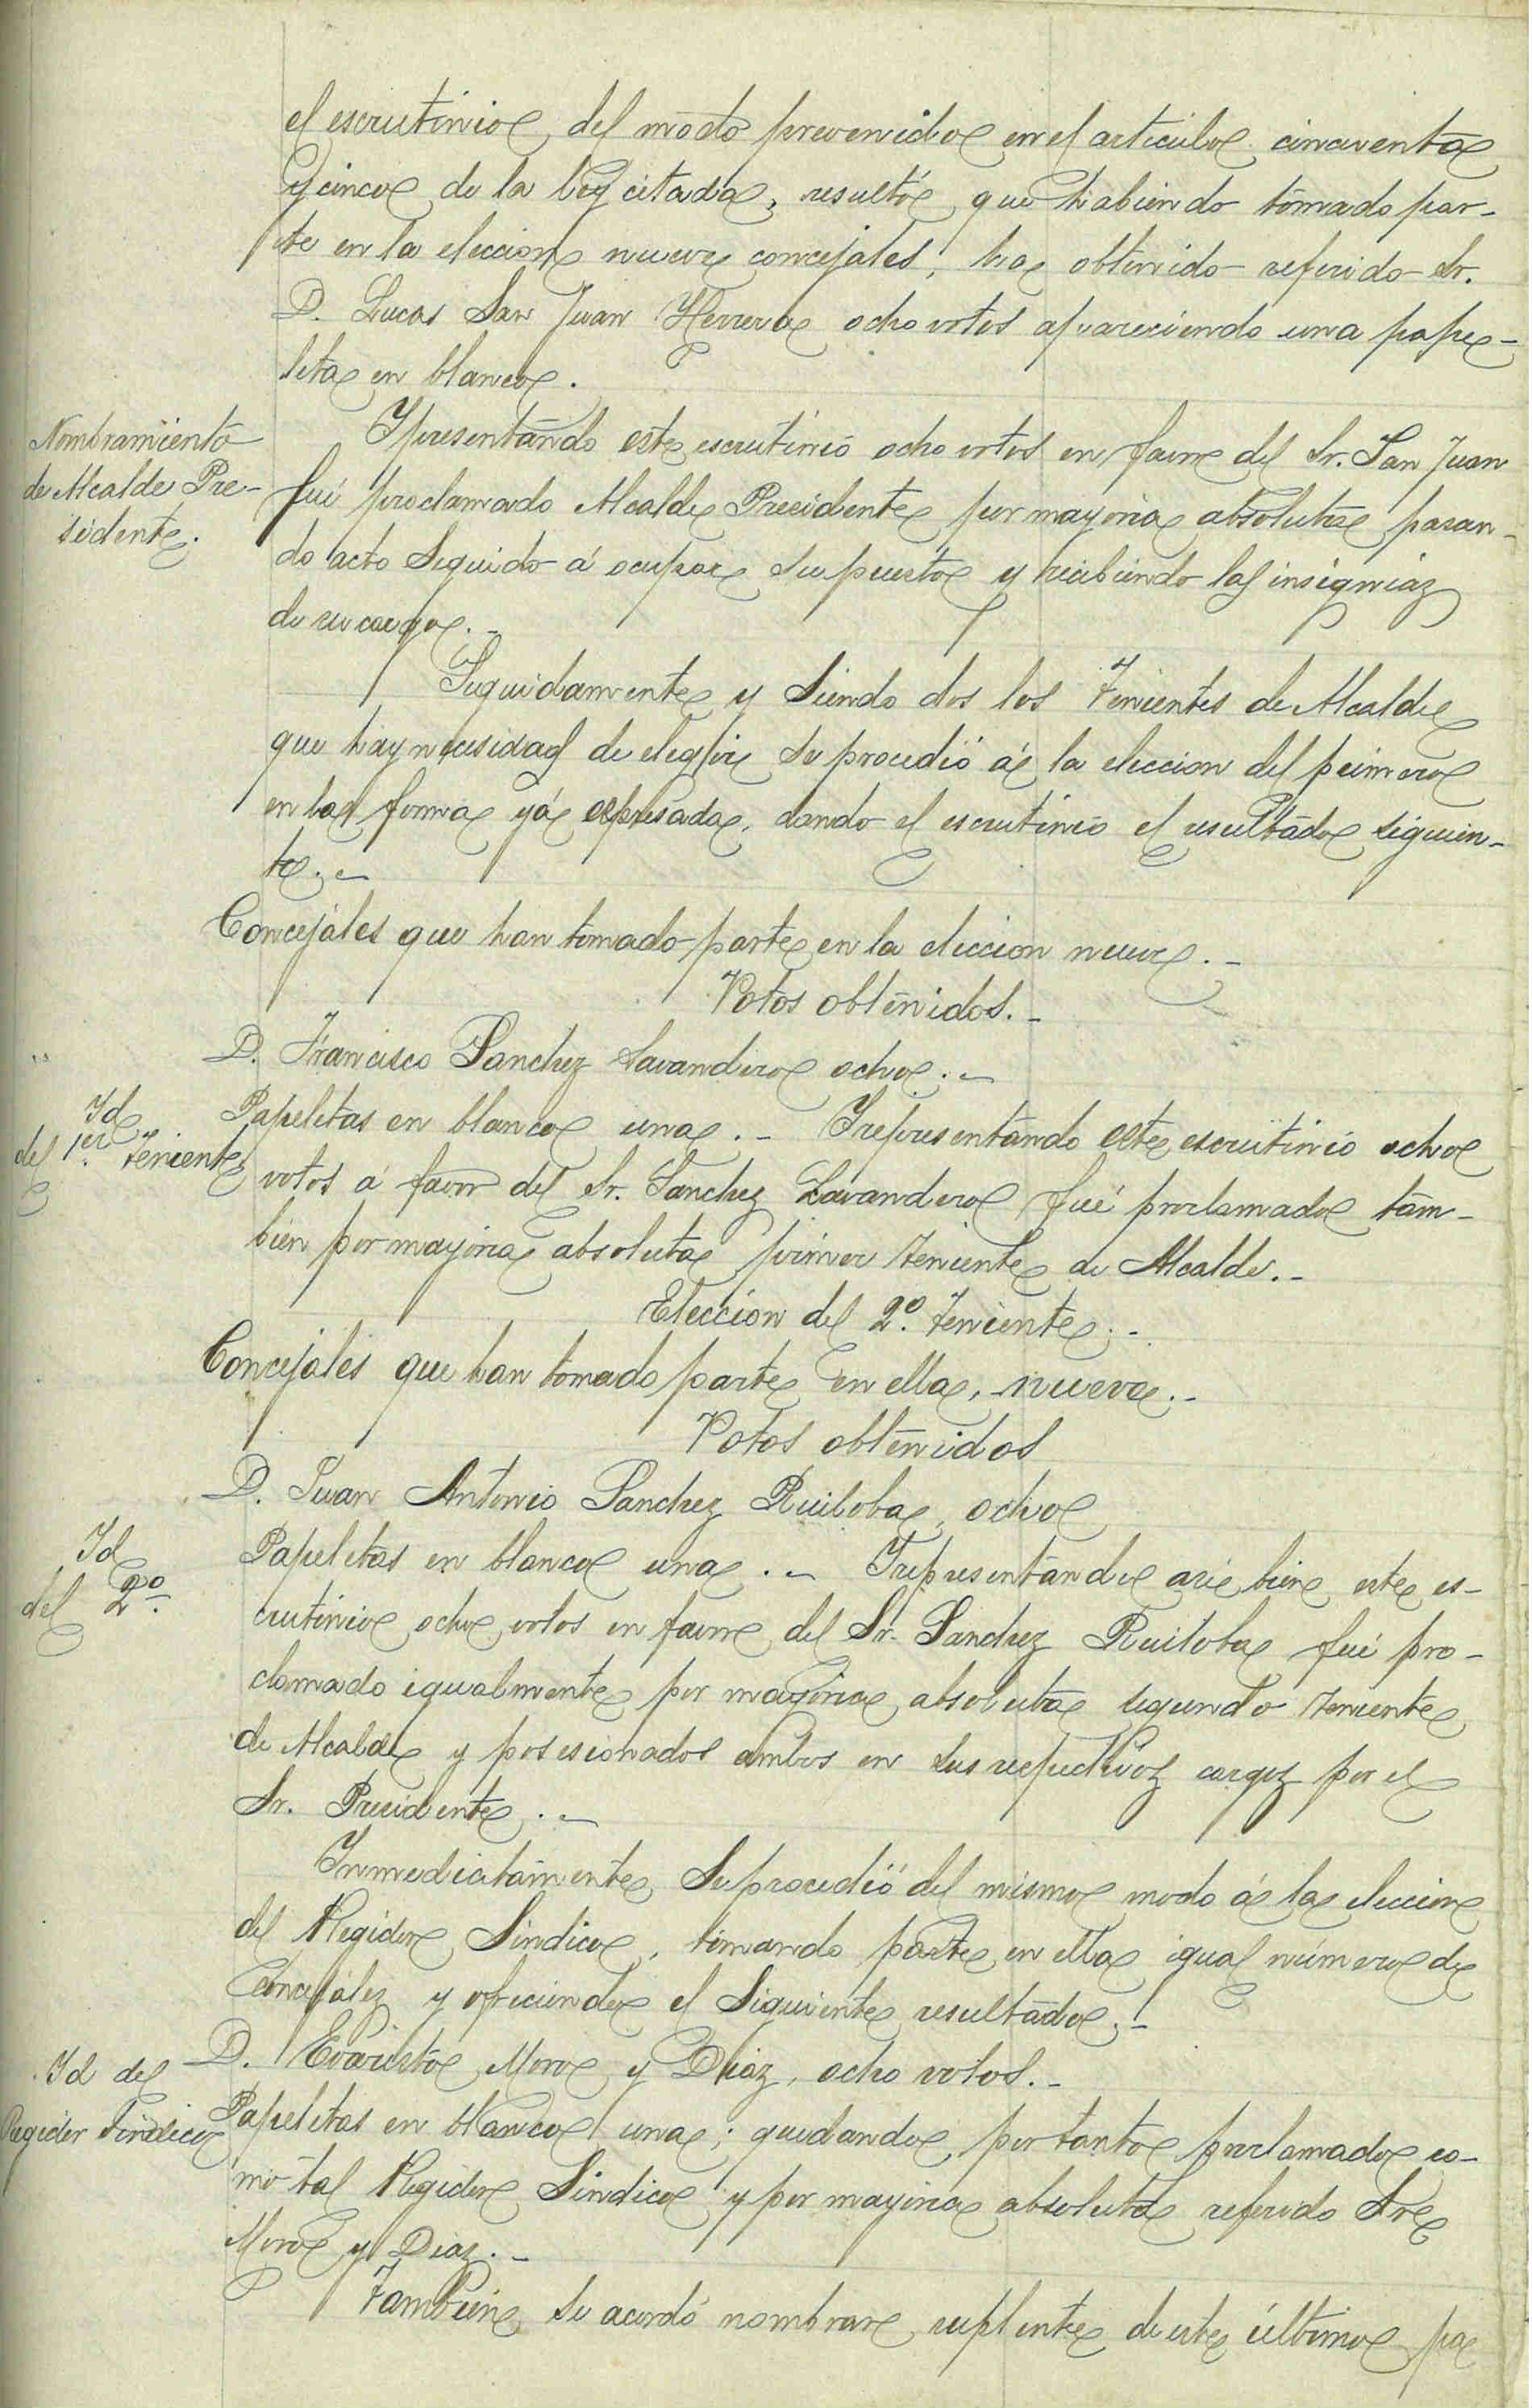 el escrutinio del modo prevenido en el articulo cincuenta
y cinco de la ley citada, resultó que habiendo tomado par-
te en la eleccion nueve concejales, ha obtenido referido Sr.
D. Lucas San Juan Herrera ocho votos apareciendo una pape-
leta en blanco.
Nombramiento
de Alcalde Pre-
sidente.
Y presentando este escrutinio ocho votos en favor del Sr. San Juan
fué proclamado Alcalde Presidente por mayoria absoluta pasan-
do acto seguido á ocupar su puesto y recibiendo las insignias
de su cargo.-
Seguidamente y siendo dos los Tenientes de Alcalde
que hay necesidad de elegir se procedió á la eleccion del primero
en la forma yá espresada, dando el escrutinio el resultado siguien-
te.-
Concejales que han tomado parte en la eleccion nueve.-
Votos obtenidos.-
D. Francisco Sanchez Lavandero ocho.-
Id
del 1er. Teniente
Papeletas en blanco una.- Y representando este escrutinio ocho
votos á favor del Sr. Sanchez Lavandero fué proclamado tam-
bien por mayoria absoluta primer teniente de Alcalde.-
Eleccion del 2º. teniente.-
Concejales que han tomado parte en ella, nueve.-
Votos obtenidos
D. Juan Antonio Sanchez Ruiloba, ocho
Id
del 2º.
Papeletas en blanco una.- Y representando asi bien este es-
crutinio ocho votos en favor del Sr. Sanchez Ruiloba fué pro-
clamado igualmente por mayoria absoluta segundo teniente
de Alcalde y posesionados ambos en sus respectivos cargos por el
Sr. Presidente.-
Inmediatamente se procedió del mismo modo á la eleccion
del Regidor Sindico, tomando parte en ella igual número de
Concejales y ofreciendo el siguiente resultado.-
D. Evaristo Moro y Diaz, ocho votos.-
Id del
Regidor Sindico
Papeletas en blanco una; quedando por tanto proclamado co-
mo tal Regidor Sindico y por mayoria absoluta referido Sr.
Moro y Diaz.-
Tambien se acordó nombrar suplente de este último pa